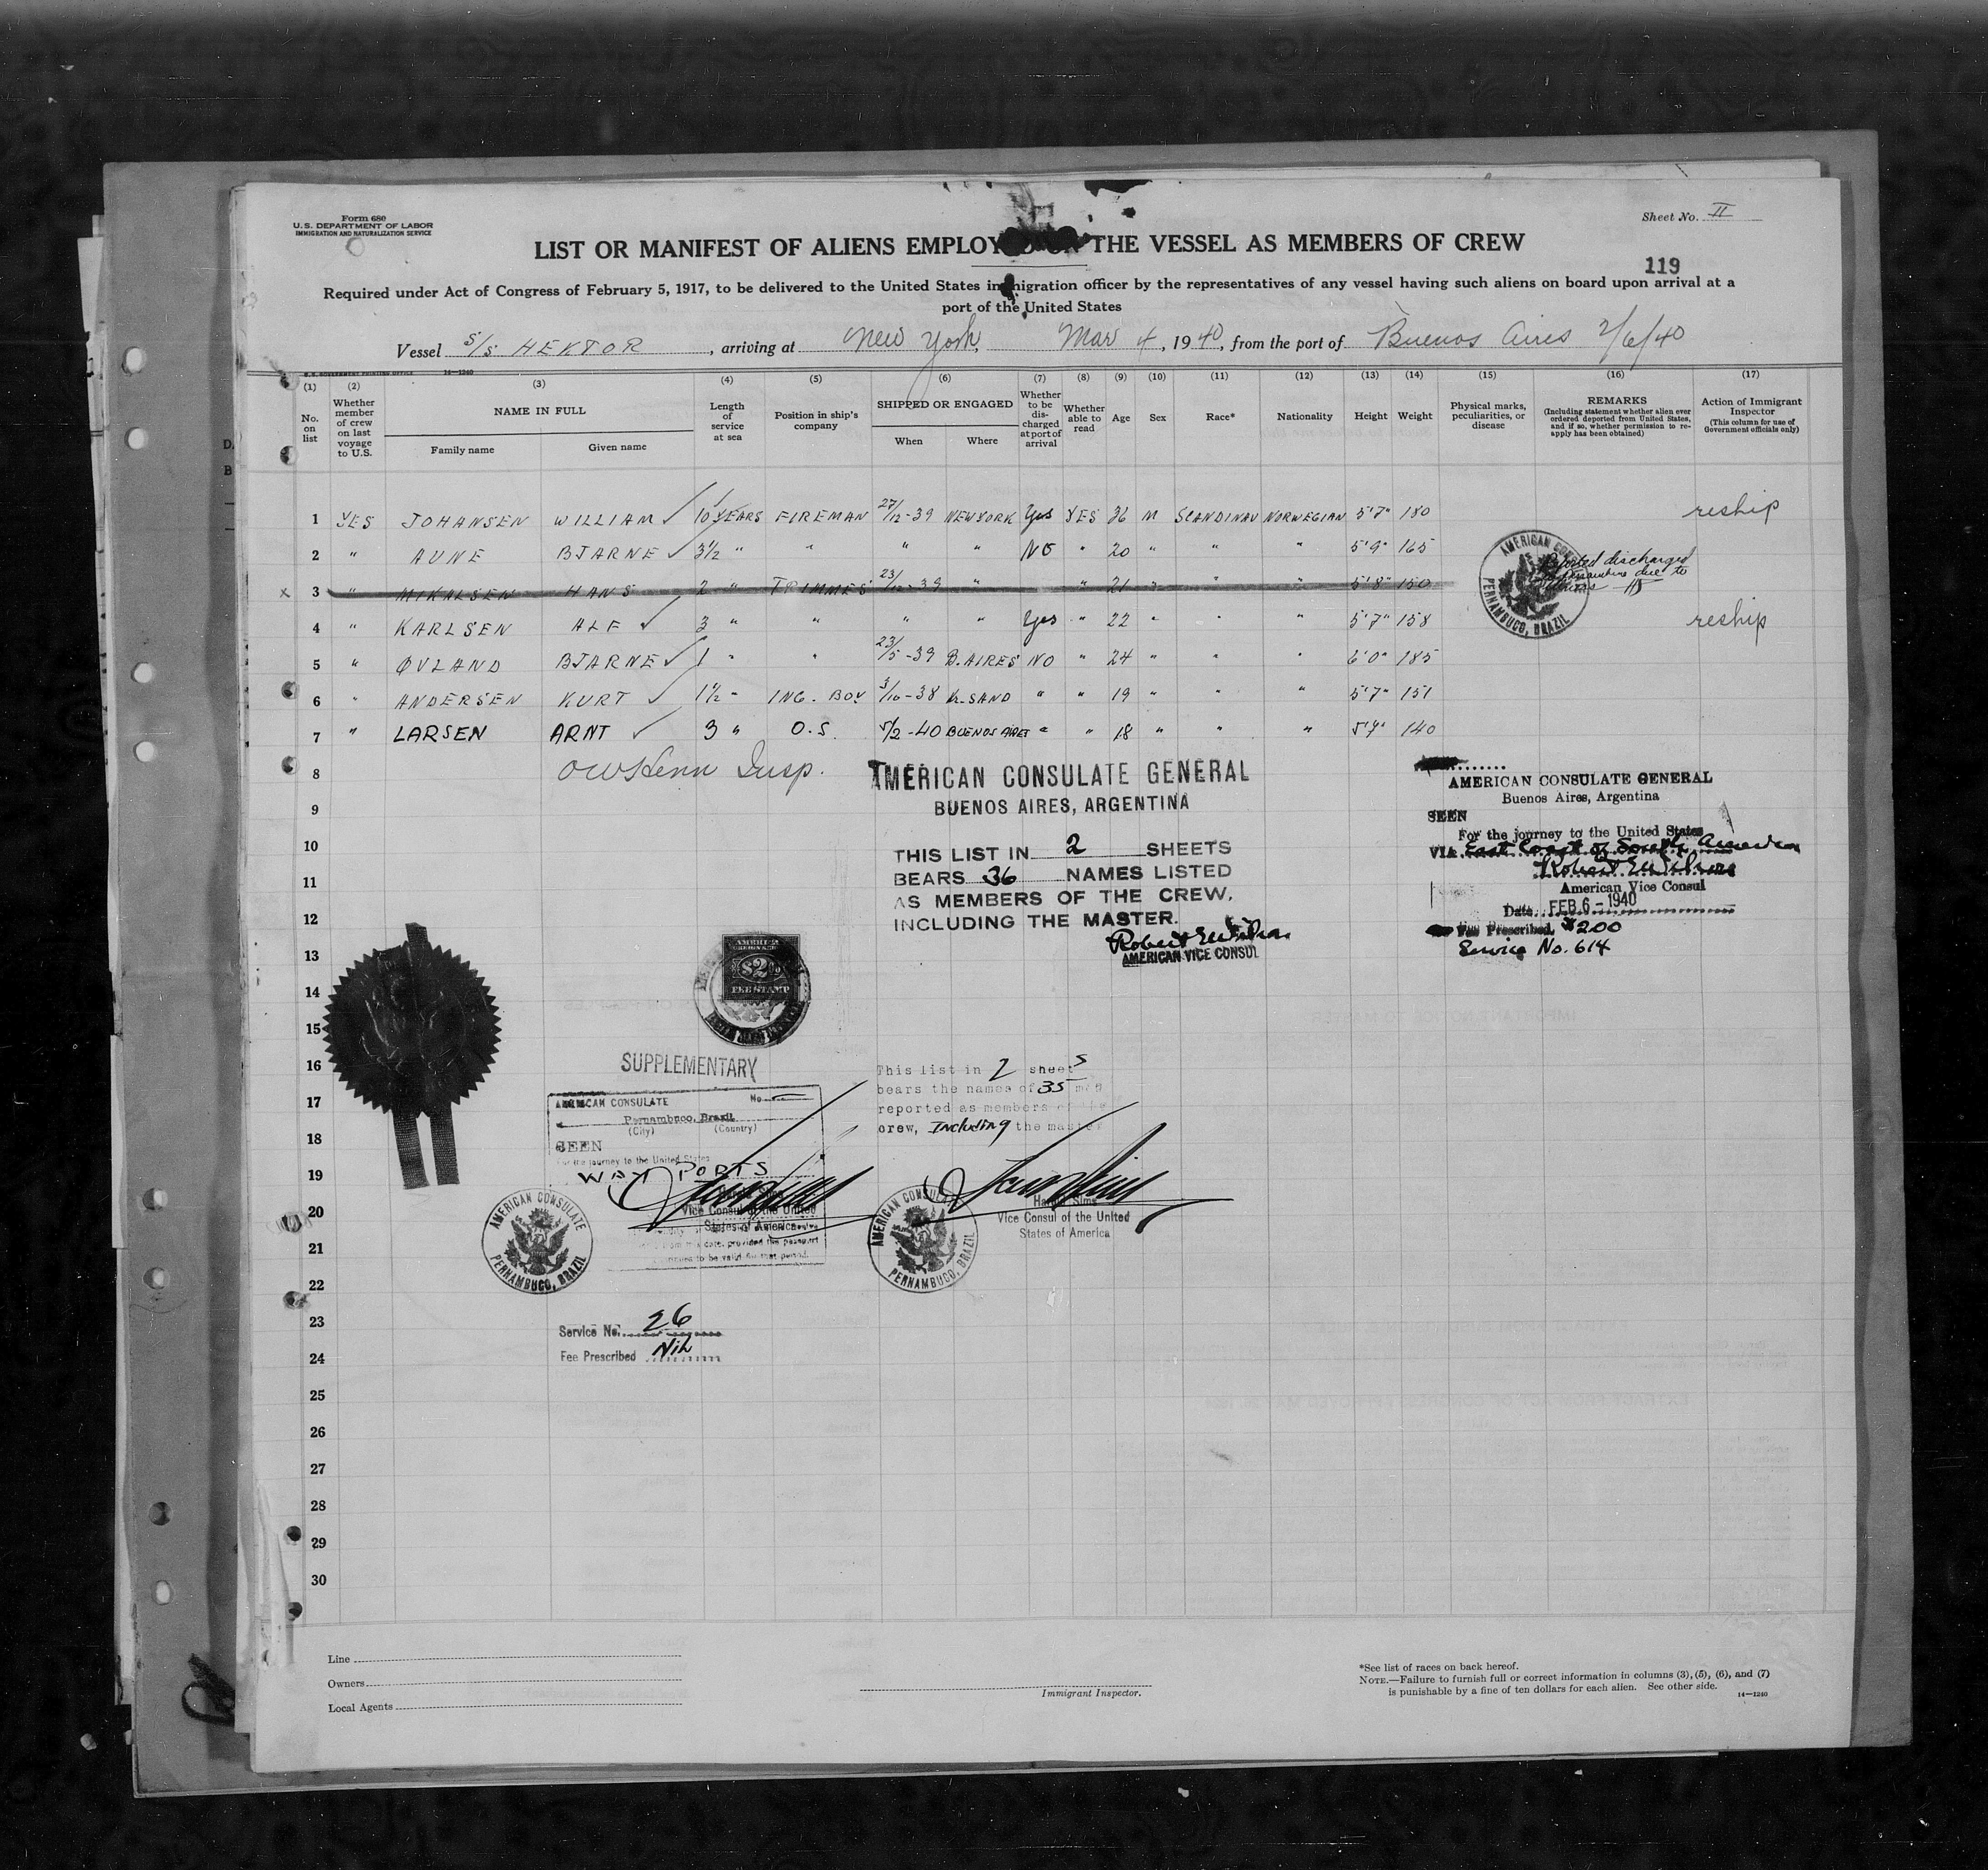 Form 680
U.S. DEPARTMENT OF LABOR
IMMIGRATION AND NATURALIZATION SERVICE
Sheet No. II
LIST OR MANIFEST OF ALIENS EMPLOYED ON THE VESSEL AS MEMBERS OF CREW
119
Required under Act of Congress of February 5, 1917, to be delivered to the United States immigration officer by the representatives of any vessel having such aliens on board upon arrival at a
port of the United States
Vessel S/S HEKTOR, arriving at New York, Mar 4, 1940, from the port of Buenos Aires 2/6/40
14—1240
(1) (2) (3) (4) (5) (6) (7) (8) (9) (10) (11) (12) (13) (14) (15) (16) (17)
No. on list
Whether member of crew on last voyage to U.S.
NAME IN FULL
Family name
Given name
Length of service at sea
Position in ship's company
SHIPPED OR ENGAGED
When
Where
Whether to be discharged at port of arrival
Whether able to read
Age
Sex
Race*
Nationality
Height
Weight
Physical marks, peculiarities, or disease
REMARKS
(Including statement whether alien ever ordered deported from United States, and if so, whether permission to reapply has been obtained)
Action of Immigrant Inspector
(This column for use of Government officials only)
1 YES JOHANSEN WILLIAM ✓ 10 YEARS FIREMAN 27/12-39 NEWYORK Yes YES 36 M SCANDINAV NORWEGIAN 5'7" 180 reship
2 " AUNE BJARNE ✓ 3½ " " " " NO " 20 " " " 5'9" 165
x 3 " MIKALSEN HANS 2 " TRIMMES 23/12-39 " " 21 " " " 5'8" 150
discharged
due to
4 " KARLSEN ALF ✓ 3 " " " " Yes " 22 " " " 5'7" 158 reship
5 " ØVLAND BJARNE ✓ 1 " " 23/5-39 B.AIRES NO " 24 " " " 6'0" 185
6 " ANDERSEN KURT ✓ 1½ " ING. BOY 3/10-38 Kr.SAND " " 19 " " " 5'7" 151
7 " LARSEN ARNT ✓ 3 " O.S. 5/2-40 BUENOS AIRES " " 18 " " " 5'7" 140
AMERICAN CONSULATE
PERNAMBUCO, BRAZIL
8
Insp.
9
10
11
12
13
14
15
16
17
18
19
20
21
22
23
24
25
26
27
28
29
30
AMERICAN CONSULATE GENERAL
BUENOS AIRES, ARGENTINA
THIS LIST IN 2 SHEETS
BEARS 36 NAMES LISTED
AS MEMBERS OF THE CREW,
INCLUDING THE MASTER.
AMERICAN VICE CONSUL
AMERICAN CONSULATE GENERAL
Buenos Aires, Argentina
SEEN
For the journey to the United States
VIA East Coast of South America
American Vice Consul
Date FEB 6 - 1940
Fee Prescribed, $2.00
Service No. 614
$2.00
FEE STAMP
SUPPLEMENTARY
AMERICAN CONSULATE No.
Pernambuco, Brazil
(City) (Country)
SEEN
For the journey to the United States
WAY PORTS
Vice Consul of the United
States of America
date, provided the passport
to be valid for that period.
AMERICAN CONSULATE
PERNAMBUCO, BRAZIL
This list in 2 sheets
bears the names of 35 men
reported as members of the
crew, Including the master
Harold Sims
Vice Consul of the United
States of America
AMERICAN CONSULATE
PERNAMBUCO, BRAZIL
Service No. 26
Fee Prescribed Nil
Line
Owners
Local Agents
Immigrant Inspector.
*See list of races on back hereof.
NOTE.—Failure to furnish full or correct information in columns (3), (5), (6), and (7)
is punishable by a fine of ten dollars for each alien. See other side.
14—1240